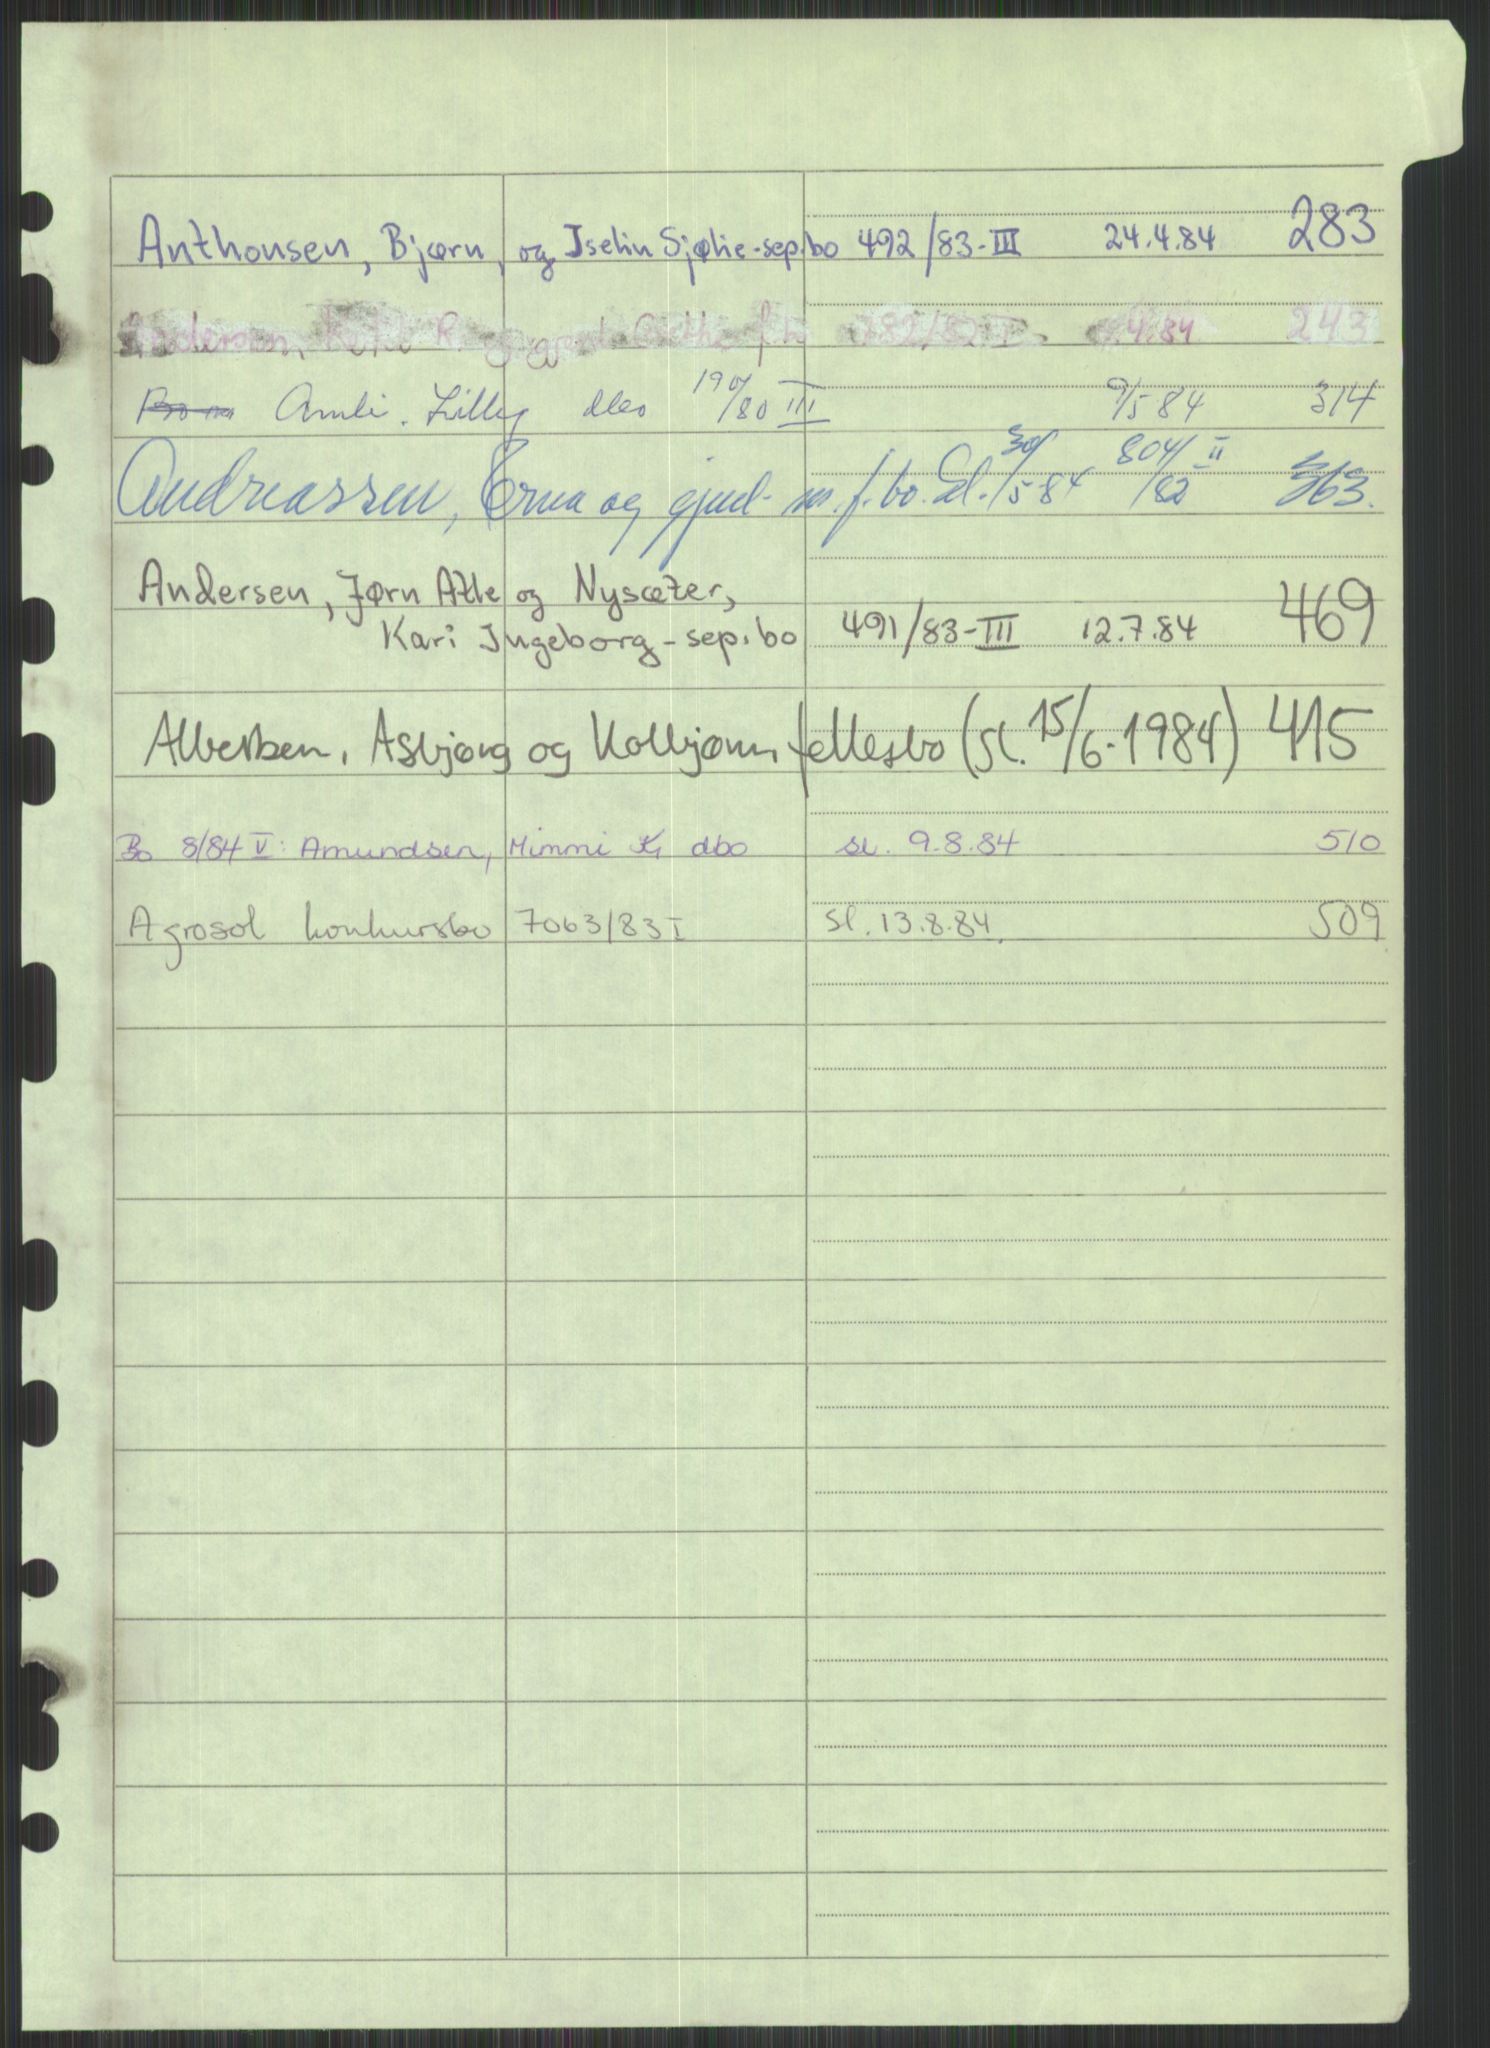 Anthonsen, Bjørn, og Iselin Sjølie - sep.bo 492/83-III 24.4.84 283
Andersen, Ketil R. og gjenl. 782/82 I 4.84 243
Amli. Lilly dbo 190/80 III 9/5 84 314
Andreassen, Erna og gjenl. f.bo. Sl. 30/5-84 804/82 II 363.
Andersen, Jørn Atle og Nysæter,
Kari Ingeborg - sep.bo 491/83-III 12.7.84 469
Albertsen, Asbjørg og Kolbjørn, fellesbo (sl. 15/6-1984) 415
Bo 8/84 V: Amundsen, Mimmi K, dbo sl. 9.8.84 510
Agrosol konkursbo 7063/83 I sl. 13.8.84. 509